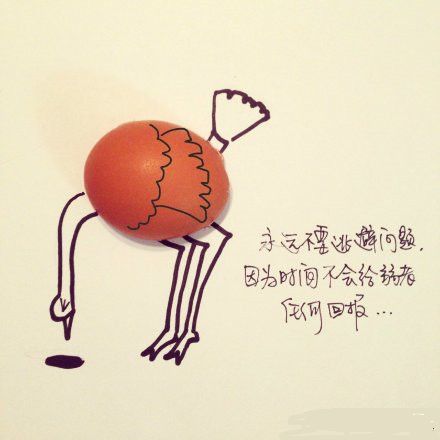 永远不要逃避问题，
因为时间不会给弱者
任何回报...